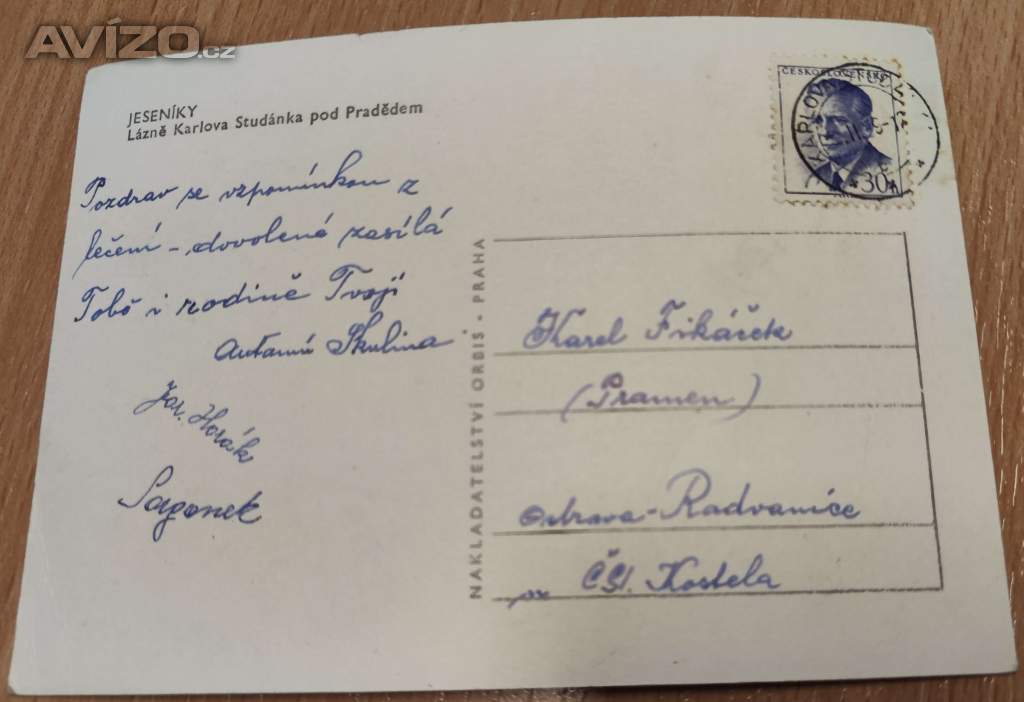 AVÍZO.cz
JESENÍKY
Lázně Karlova Studánka pod Pradědem
Pozdrav se vzpomínkou z
léčení - dovolené zasílá
Tobě i rodině Tvojí
Skulina
Jar. Horák
Sagonek
NAKLADATELSTVÍ ORBIS - PRAHA
ČESKOSLOVENSKO
30
KARLOVA
Karel Fikáček
(Pramen)
Ostrava-Radvanice
Čsl. Kostela